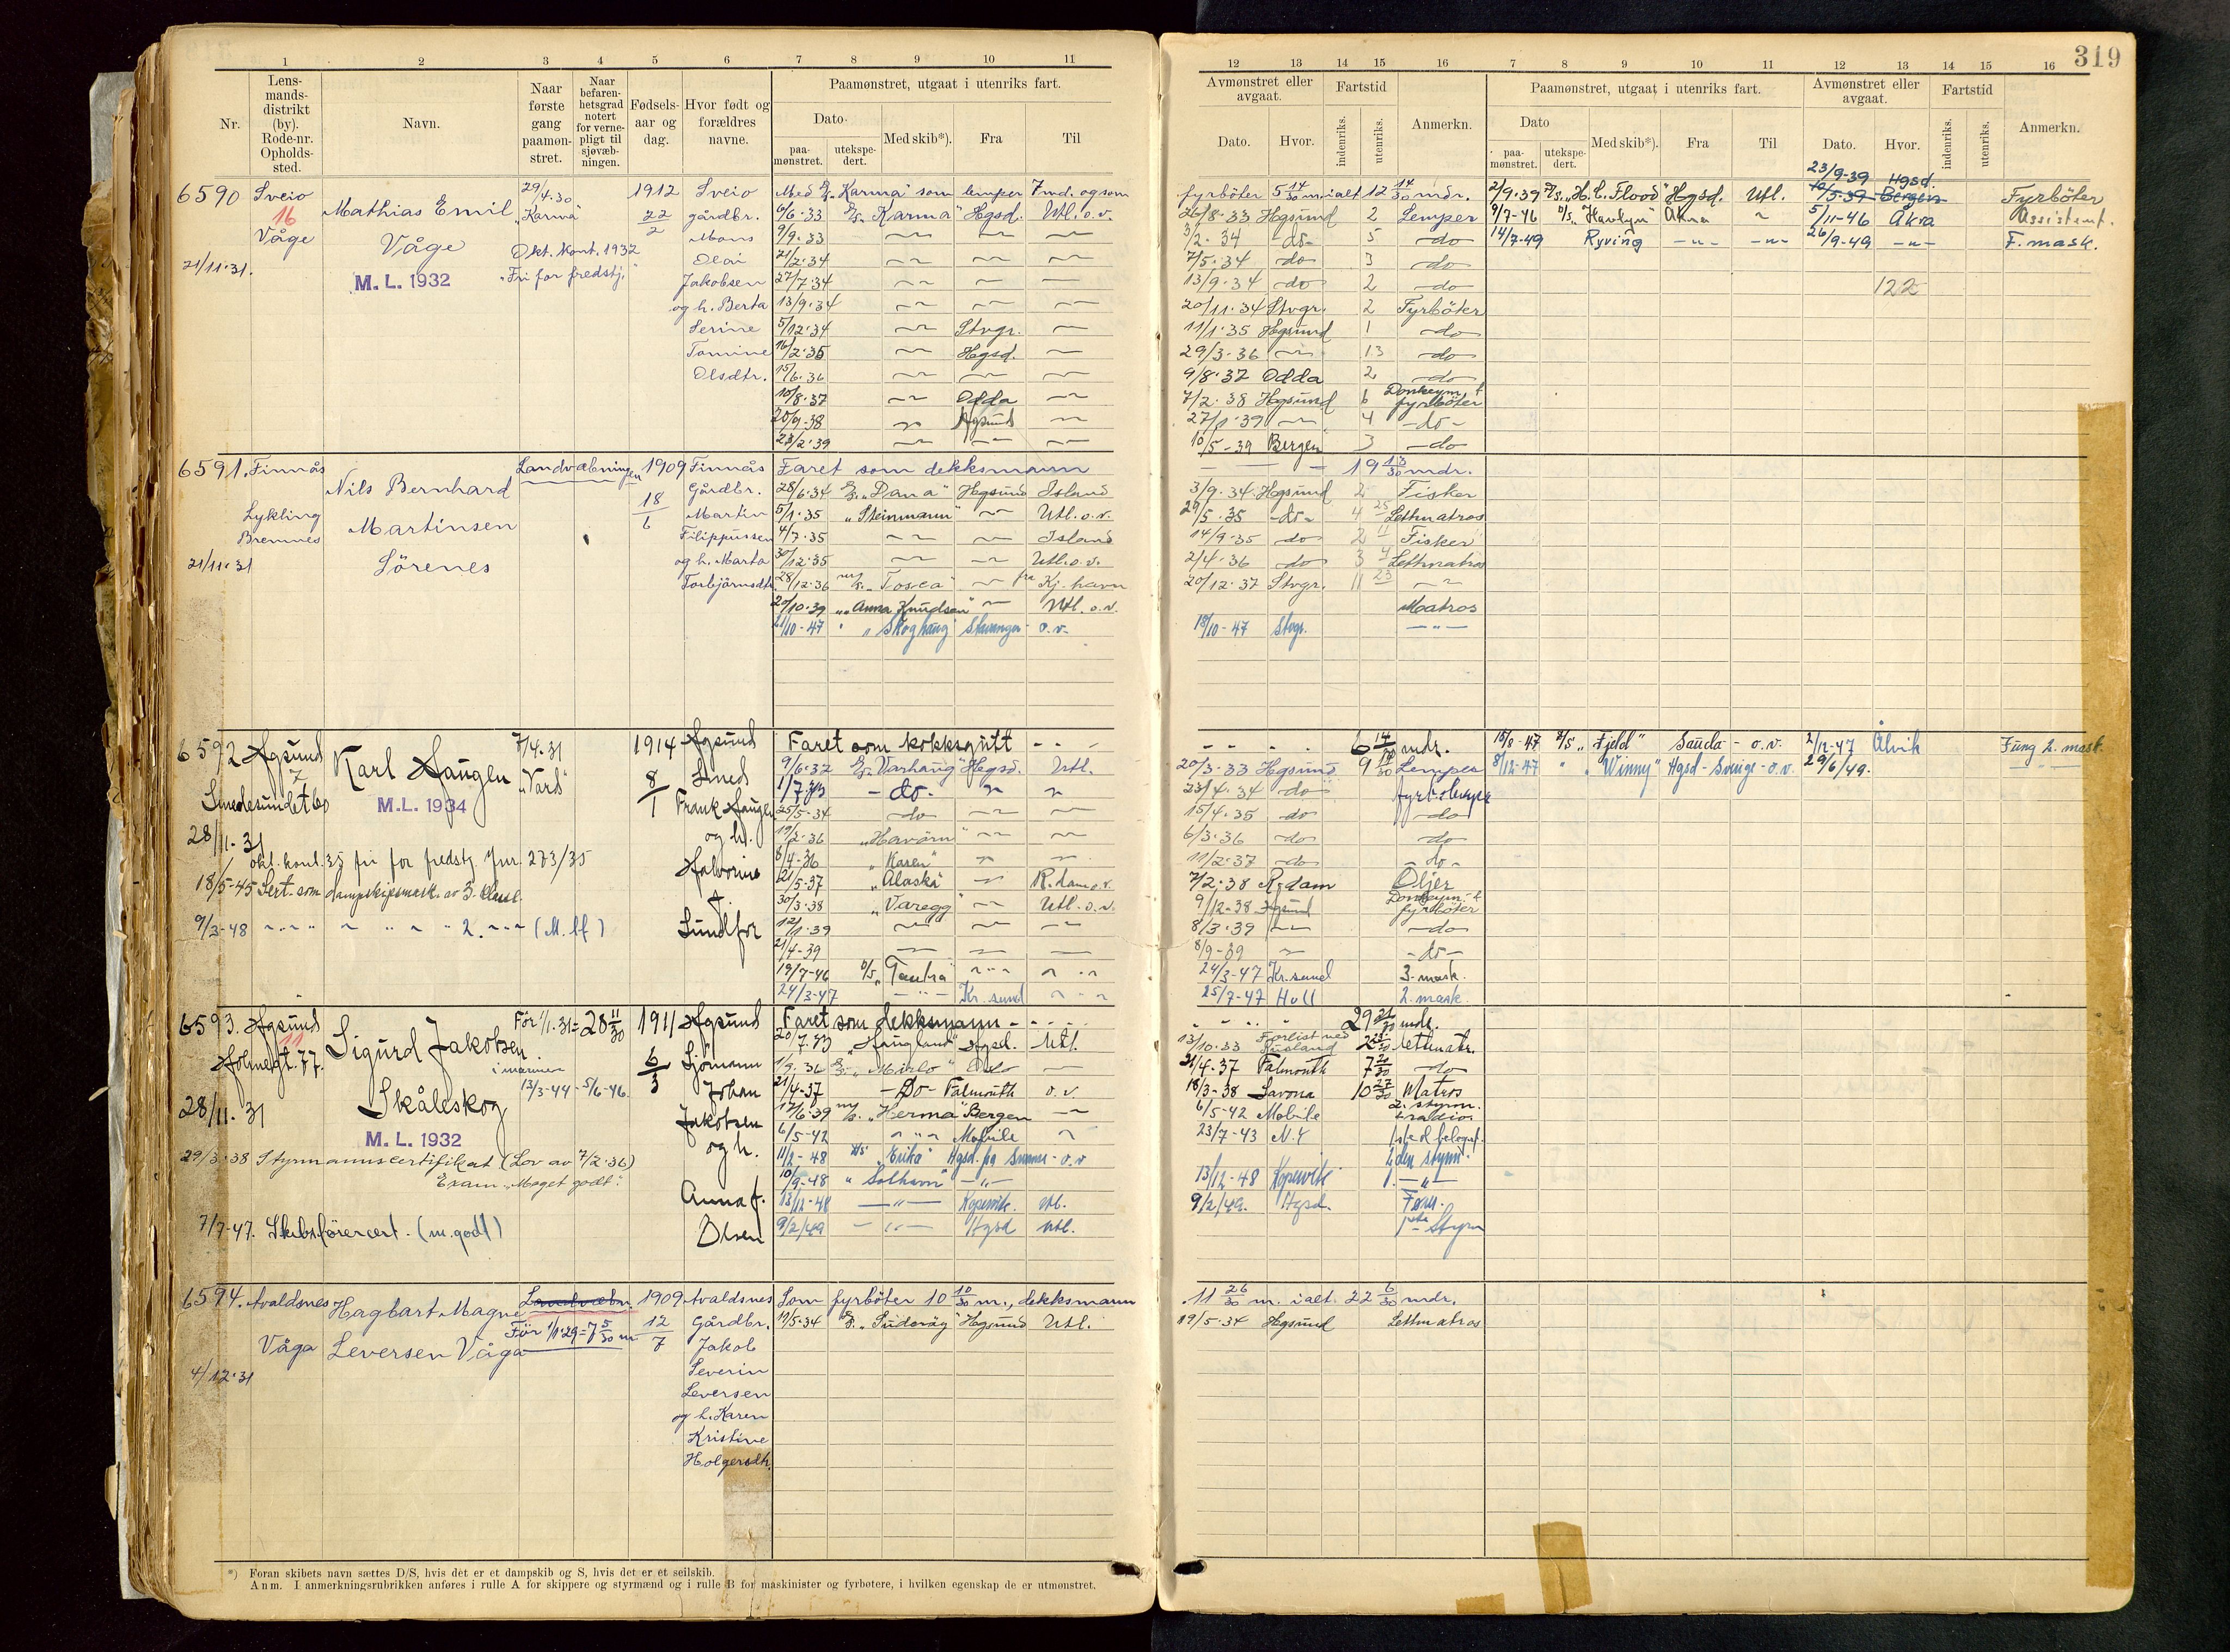 319
1 2 3 4 5 6 7 8 9 10 11
Nr.
Lens-
mands-
distrikt
(by).
Rode-nr.
Opholds-
sted.
Navn.
Naar
første
gang
paamøn-
stret.
Naar
befaren-
hetsgrad
notert
for verne-
pligt til
sjøvæb-
ningen.
Fødsels-
aar og
dag.
Hvor født og
forældres
navne.
Paamønstret, utgaat i utenriks fart.
Dato
paa-
mønstret.
utekspe-
dert.
Med skib*).
Fra
Til
12 13 14 15 16 7 8 9 10 11 12 13 14 15 16
Avmønstret eller
avgaat.
Dato. Hvor.
Fartstid
indenriks. utenriks.
Anmerkn.
Paamønstret, utgaat i utenriks fart.
Dato
paa-
mønstret.
utekspe-
dert.
Med skib*). Fra Til
Avmønstret eller
avgaat.
Dato. Hvor.
Fartstid
indenriks. utenriks.
Anmerkn.
6590 Sveio
16
Våge
21/11.31.
Mathias Emil
Våge
M. L. 1932
29/4.30
"Karma"
Okt. kont. 1932
"Fri for fredstj."
1912
22/2
Sveio
gårdbr.
Mons
Olai
Jakobsen
og h. Berta
Serine
Tomine
Olsdtr.
Med D/S "Karma" som lemper 7 md. og som
6/6.33 D/S "Karma" Hgsd. Utl. o.v.
9/9.33
21/2.34
27/7.34
13/9.34
5/12.34 Stvgr.
16/2.35 Hgsd.
15/6.36
10/8.37 Odda
20/9-38 Hgsund
23/2.39
fyrböter 5 14/30 m. ialt 12 14/30 mdr.
26/8-33 Hgsund 2 Lemper
3/2-34 -do- 5 do
7/5.34 do 3 do
13/9.34 do 2 do
20/11.34 Stvgr. 2 Fyrböter
11/1.35 Hgsund 1 do
29/3-36 13 do
9/8.37 Odda 2 do
7/2.38 Hgsund 6 Donkeym. & fyrböter
27/1.39 4 -do-
10/5-39 Bergen 3 do
2/9.39 D/S "H. C. Flood" Hgsd. Utl. 23/9-39 Hgsd. Fyrböter
10/5-39 Bergen
9/7-46 D/S "Havlyn" Åkra ~ 5/11-46 Åkra Assistent.
14/7-49 Ryving -"- -"- 26/9-49 -"- F. mask.
122
6591. Finnås
Lykling
Bremnes
21/11.31
Nils Bernhard
Martinsen
Sörenes
Landvæbningen
1909
18/6
Finnås
Gårdbr.
Martin
Filippussen
og h. Marta
Torbjörnsdtr.
Faret som dekksmann
28/6.34 D/S "Dana" Hgsund Island
5/1.35 "Steinmann" Utl. o.v.
4/7.35 Island
30/12.35 Utl. o.v.
28/12.36 M/S "Tosca" fra Kj.havn
20/10.39 " "Anna Knudsen" Utl. o.v.
21/10-47 " "Skoghaug" Stavanger o.v.
19 13/30 mdr.
3/9.34 Hgsund 2 Fisker
29/5.35 -do- 4 25 Lettmatros
14/9.35 do 2 11 Fisker
2/4.36 do 3 4 Lettmatros
20/12.37 Stvgr. 11 23
Matros
18/10-47 Stvgr. -"-
6592 Hgsund
7
Smedesundet 60
28/11.31
Karl Haugen
M.L. 1934
7/4.31
"Vard"
okt. kont. 35 fri for fredstj. Jnr. 273/35
18/5-45 Sert. som dampskipsmask. av 3. klasse.
9/3-48 2. (M.tf)
1914
8/1
Hgsund
Smed
Frank Haugen
og h.
Halvorine
f.
Sundfør
Faret som kokksgutt
9/6.32 D/S "Varhaug" Hgsd. Utl.
1/7.33 -do-
25/5-34 do
19/2.36 "Havörn"
8/4-36 "Karen"
21/5-37 "Alaska" R.dam o.v.
30/3.38 "Varegg" Utl. o.v.
12/1.39
21/4-39
19/7-46 D/S "Tautra"
24/3-47 Kr.sund
6 14/30 mdr.
20/3.33 Hgsund 9 14/30 Lemper
23/4.34 do fyrb.&lemper
15/4.35 do do
6/3.36 do do
11/2.37 do -do-
7/2.38 R.dam Oljer
9/12-38 Hgsund Donkeym. & fyrböter
8/3.39 do
8/9-39 -do-
24/3-47 Kr.sund 3. mask.
25/7-47 Hull 2. mask.
15/8-47 D/S "Fjeld" Sauda - o.v. 2/12-47 Ålvik Fung 2. mask.
8/12-47 " "Winny" Hgsd - Sverige - o.v. 29/6/49. -"-
6593. Hgsund
11
Holmegt. 77.
28/11.31
Sigurd Jakobsen
Skåleskog
M. L. 1932
Før 1/1.31= 28 11/30
i marinen
13/3-44 - 5/6-46.
29/3.38 Styrmannscertifikat (Lov av 7/2.36)
Exam. "Meget godt".
7/7-47. Skibsførercert. (m. godt)
1911
6/3
Hgsund
Sjömann
Johan
Jakobsen
og h.
Anna f.
Olsen
Faret som dekksmann
20/7.33 "Haugland" Hgsd. Utl.
1/9.36 D/S "Mirlo" Oslo
21/4-37 -Do- Falmouth o.v.
17/6.39 M/S "Herma" Bergen
6/5-42 Mobile
11/2-48 M/S "Erika" Hgsd. fra Sverige - o.v.
10/9-48 " Solhavn" -"-
13/12-48 -"- Kopervik. Utl.
9/2/49 -"- Hgsd Utl.
29 21/30 mdr.
13/10.33 Forlist ved Lettmatr.
21/4.37 Falmouth 7 20/30 do
18/3-38 Savona 10 27/30 Matros
6/5-42 Mobile 2. styrm. & radio.
23/7-43 N.Y
2den styrm.
13/12-48 Kopervik 1. -"-
9/2/49. Hgsd. Før.
1ste Styrm
6594. Avaldsnes
Våga
4/12.31
Hagbart Magne
Leversen Våga
Landvæbn.
Før 1/1.29=7 5/30 m
1909
12/7
Avaldsnes
Gårdbr.
Jakob
Severin
Leversen
og h. Karen
Kristine
Holgersdtr.
Som fyrböter 10 10/30 m., dekksmann
19/5.34 D/S "Suderøy" Hgsund Utl.
11 26/30 m. ialt 22 6/30 mdr.
19/5.34 Hgsund Lettmatros
*) Foran skibets navn sættes D/S, hvis det er et dampskib og S, hvis det er et seilskib.
Anm. I anmerkningsrubrikken anføres i rulle A for skippere og styrmænd og i rulle B for maskinister og fyrbøtere, i hvilken egenskap de er utmønstret.